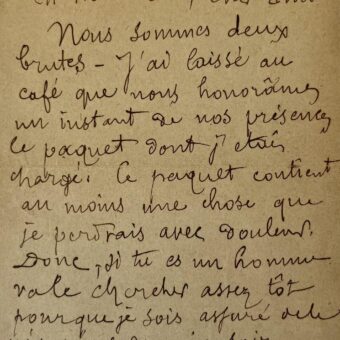 Nous sommes deux
brutes – J'ai laissé au
café que nous honorâmes
un instant de nos présences
le paquet dont j'étais
chargé. Ce paquet contient
au moins une chose que
je perdrais avec douleur.
Donc, si tu es un homme
va le chercher assez tôt
pour que je sois assuré de le